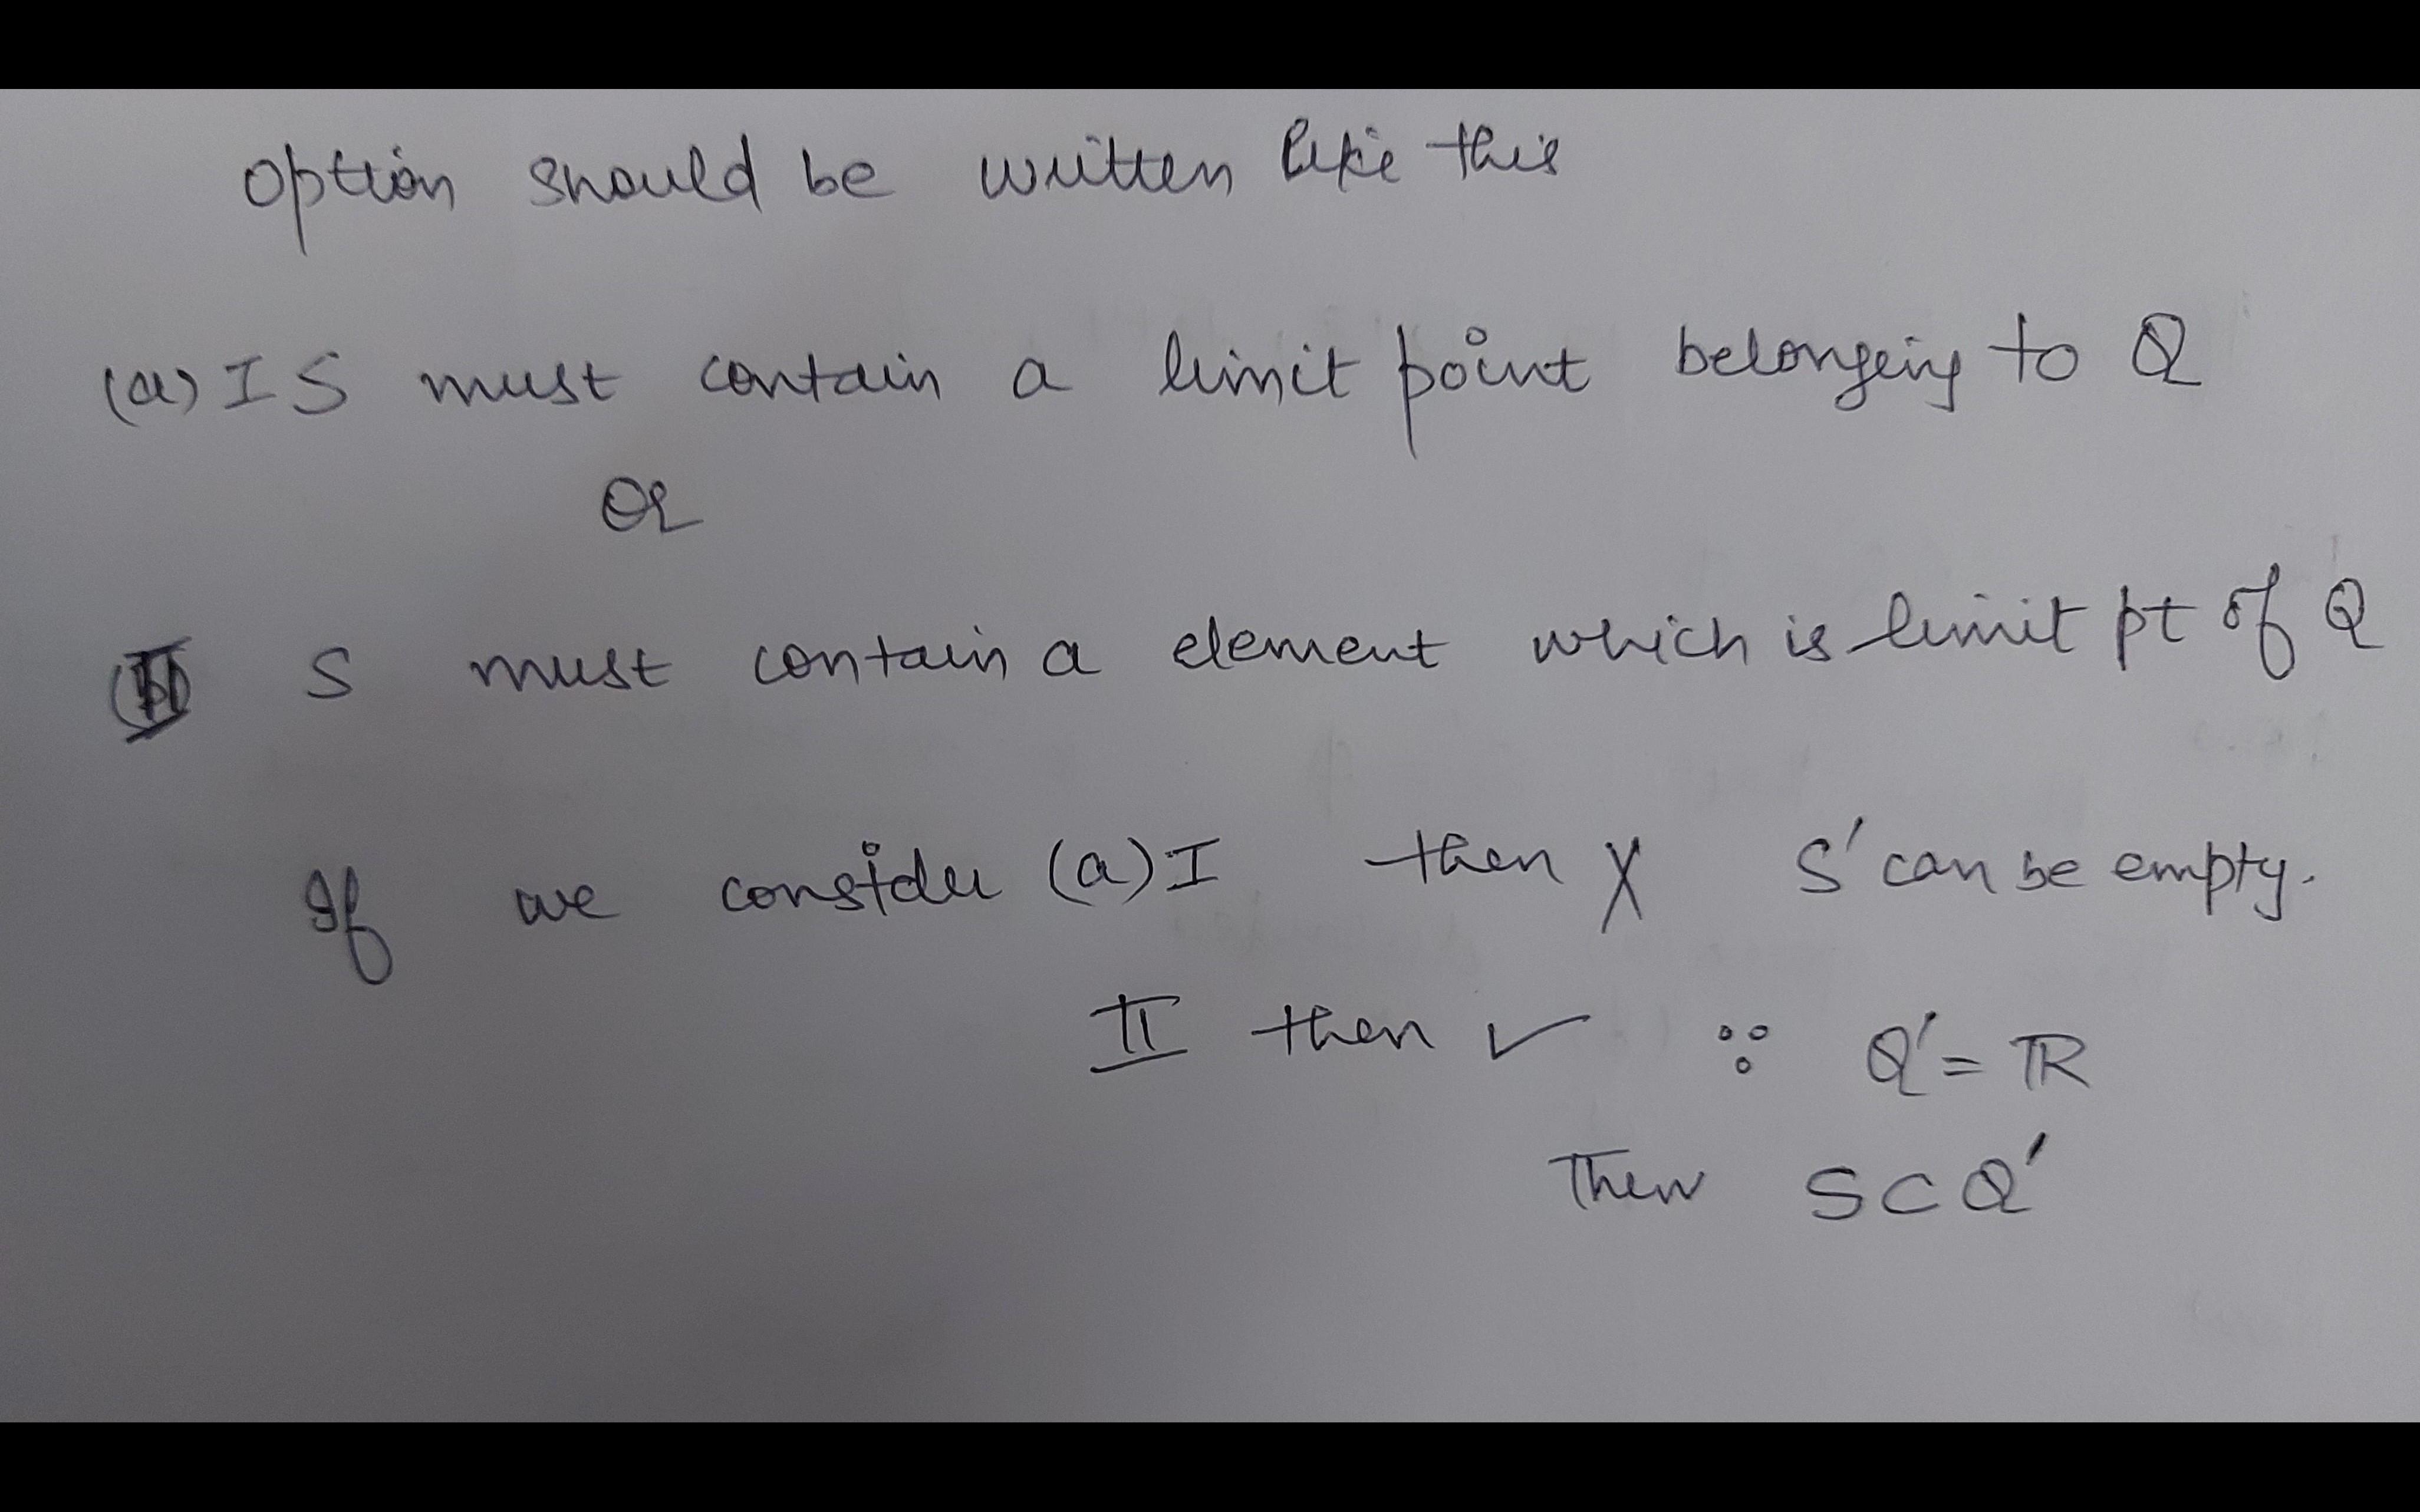 option should be written like this
(a) I S must contain a limit point belongeing to Q
OR
II S must contain a element which is limit pt of Q
If we consider (a) I then X S' can be empty.
II then ✓ ∵ Q' = ℝ
Then S ⊂ Q'